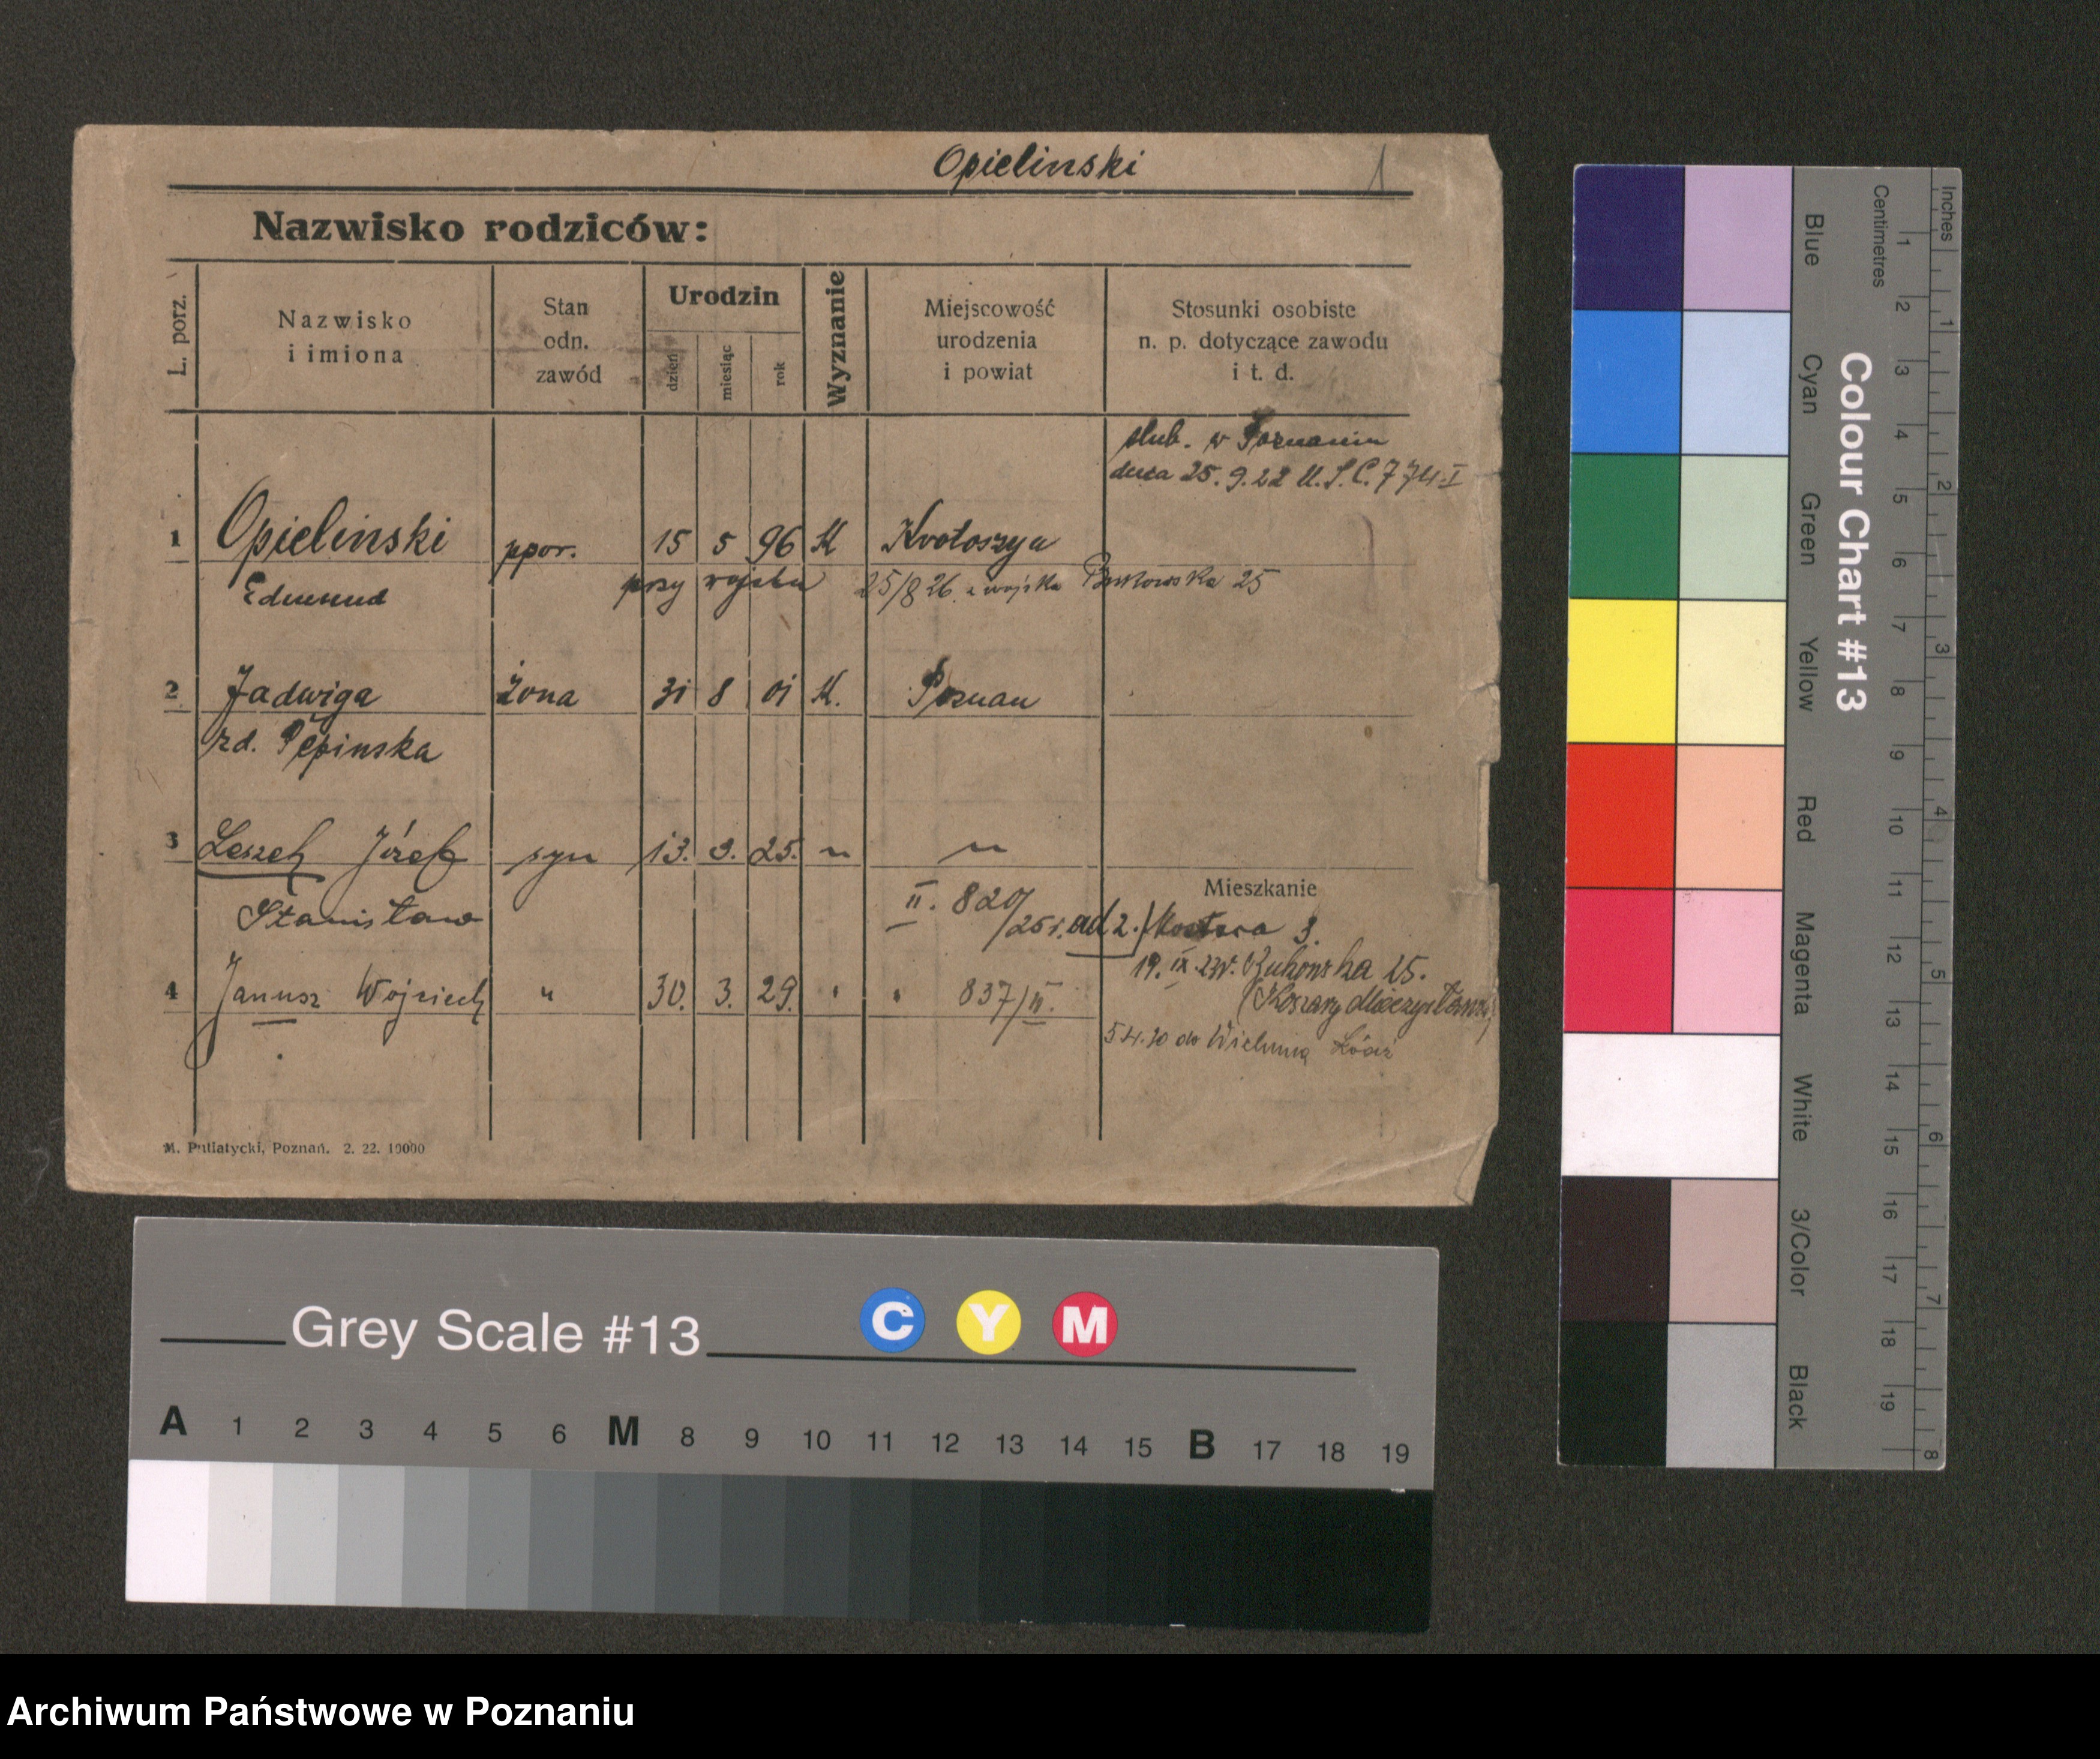 Opielinski 1
Nazwisko rodziców:
L. porz.
Nazwisko
i imiona
Stan
odn.
zawód
Urodzin
dzień
miesiąc
rok
Wyznanie
Miejscowość
urodzenia
i powiat
Stosunki osobiste
n. p. dotyczące zawodu
i t. d.
slub. w Poznaniu
dnia 25. 9. 22 U. S. C. 774. I
1 Opielinski ppor. 15 5 96 K Krotoszyn
Edmund przy wojsku 25/8 26. z wojska Bukowska 25
2 Jadwiga żona 31 8 01 K. Poznan
rd. Pępinska
3 Leszek Józef syn 13. 9. 25. " "
Stanisław II. 820/25 r. ad 2.)
Mieszkanie
3.
19. IX. 23 r. Bukowska 25.
(Koszary
4 Janusz Wojciech " 30. 3. 29. " " 837/II.
5 4. 30 do Wielunia Łódź
M. Putiatycki, Poznań. 2. 22. 10000
Grey Scale #13
C Y M
A 1 2 3 4 5 6 M 8 9 10 11 12 13 14 15 B 17 18 19
Colour Chart #13
Blue
Cyan
Green
Yellow
Red
Magenta
White
3/Color
Black
Centimetres
1 2 3 4 5 6 7 8 9 10 11 12 13 14 15 16 17 18 19
Inches
1 2 3 4 5 6 7 8
Archiwum Państwowe w Poznaniu